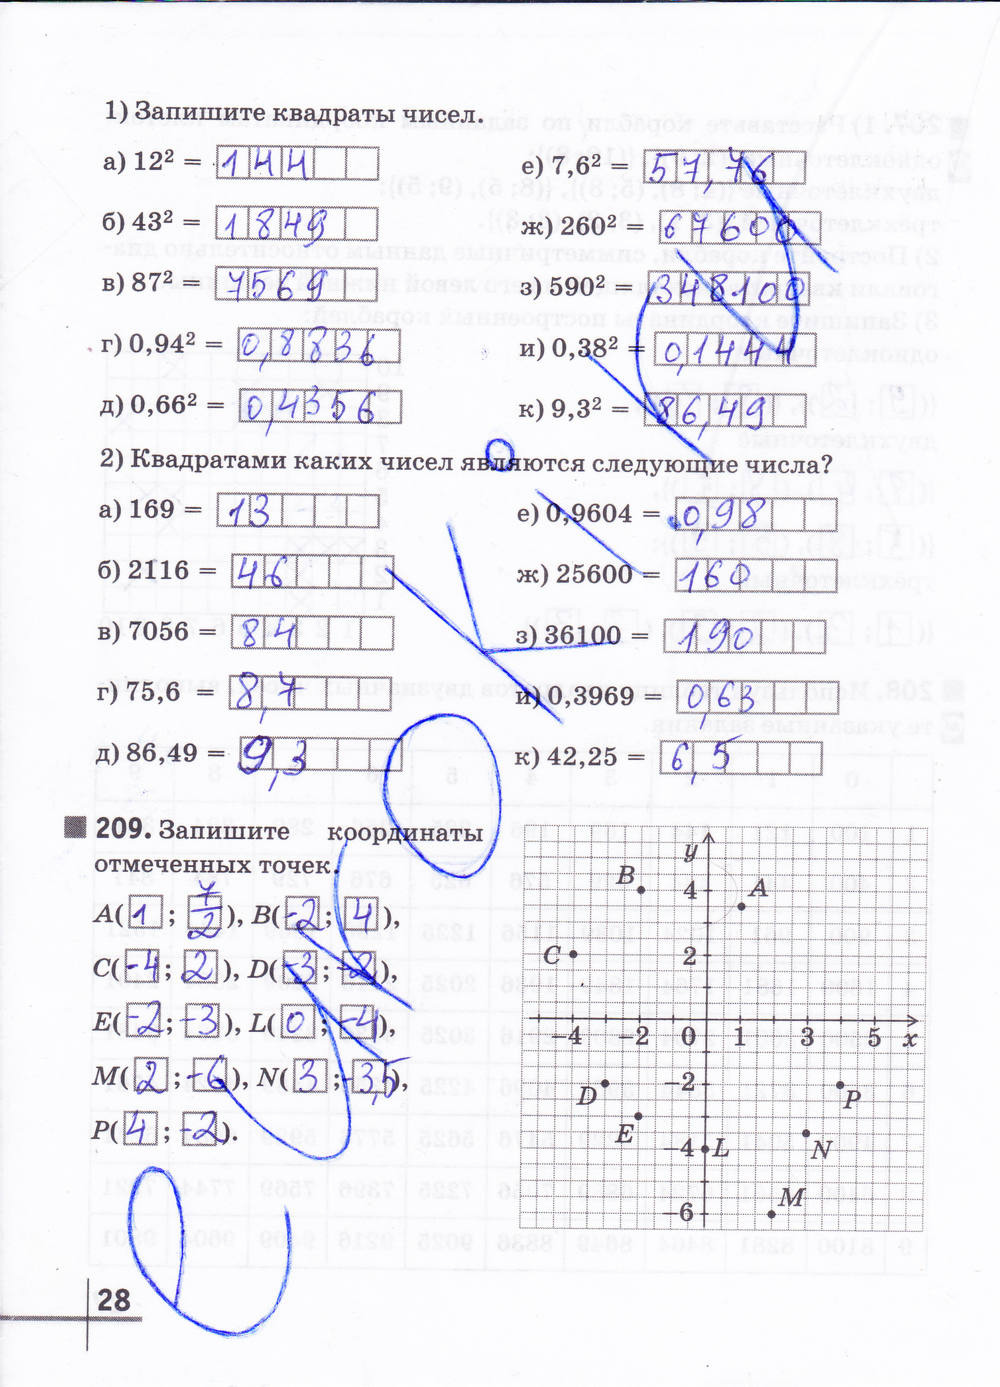 1) Запишите квадраты чисел.
а) 12² = 144
е) 7,6² = 57,76
б) 43² = 1849
ж) 260² = 67600
в) 87² = 7569
з) 590² = 348100
г) 0,94² = 0,8836
и) 0,38² = 0,1444
д) 0,66² = 0,4356
к) 9,3² = 86,49
2) Квадратами каких чисел являются следующие числа?
а) 169 = 13
е) 0,9604 = 0,98
б) 2116 = 46
ж) 25600 = 160
в) 7056 = 84
з) 36100 = 190
г) 75,6 = 8,7
и) 0,3969 = 0,63
д) 86,49 = 9,3
к) 42,25 = 6,5
209. Запишите координаты
отмеченных точек.
A(1; 7/2), B(-2; 4),
C(-4; 2), D(-3; -2),
E(-2; -3), L(0; -4),
M(2; -6), N(3; -3,5),
P(4; -2).
y
B 4 A
C 2
-4 -2 0 1 3 5 x
D -2 P
E -4 L N
-6 M
28